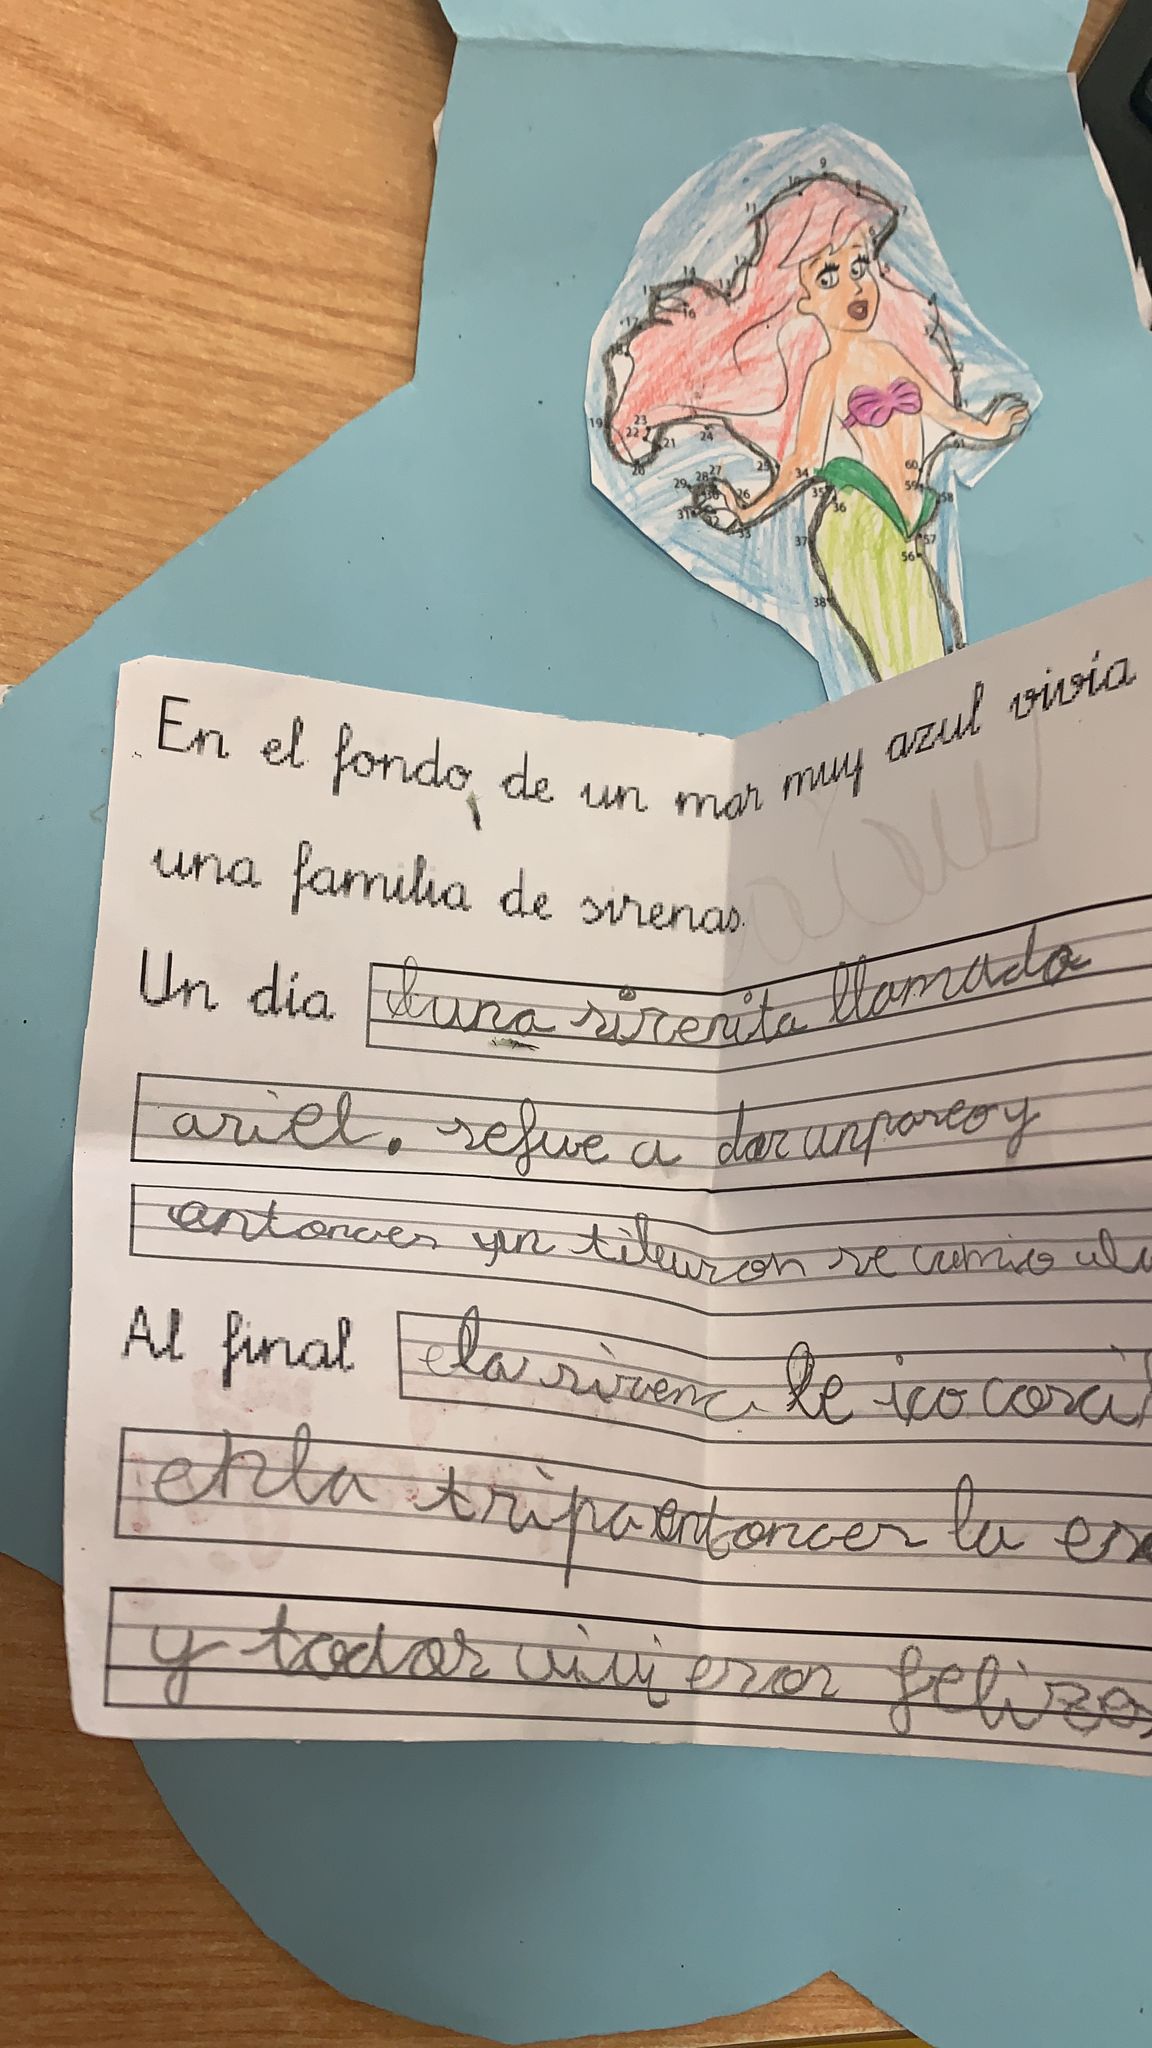 En el fondo de un mar muy azul vivía
una familia de sirenas.
Un día una sirenita llamado
ariel. sefue a dar un pareo y
entonces un tiburon se comio
Al final la sirena le iso
enla tripa entonces la
y todos vivieron felizes